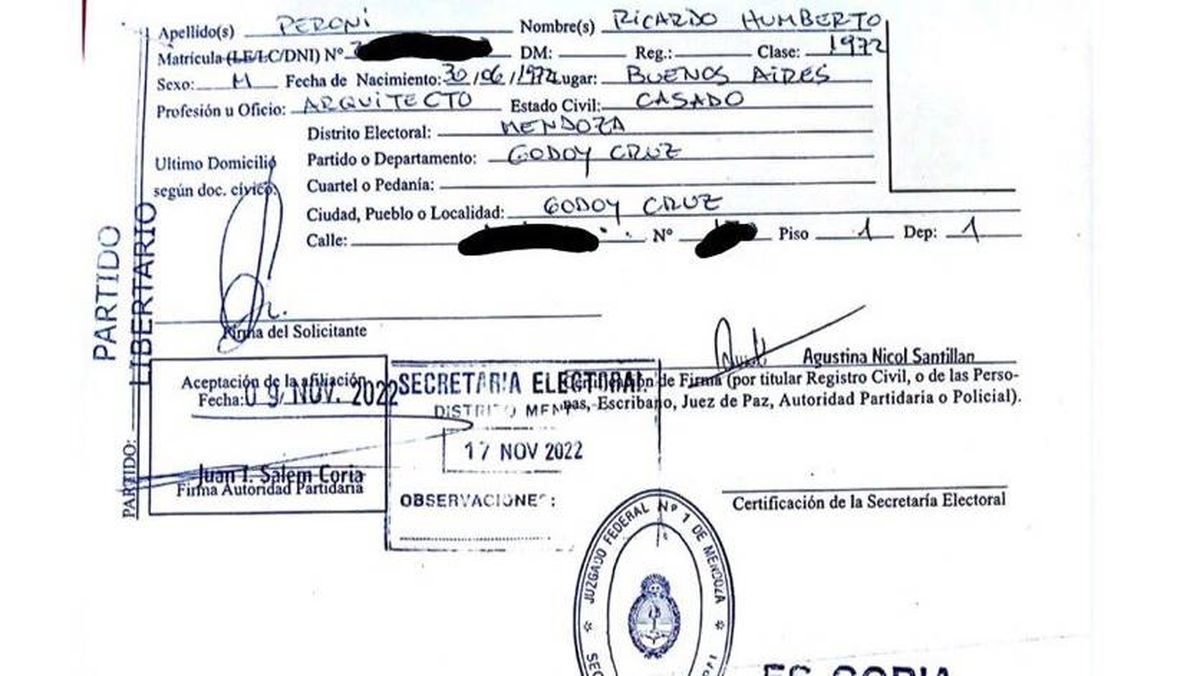 Apellido(s) PERONI Nombre(s) RICARDO HUMBERTO
Matrícula (LE/LC/DNI) Nº DM: Reg.: Clase: 1972
Sexo: M Fecha de Nacimiento: 30/06/1972 Lugar: BUENOS AIRES
Profesión u Oficio: ARQUITECTO Estado Civil: CASADO
Distrito Electoral: MENDOZA
Ultimo Domicilio según doc. cívico:
Partido o Departamento: GODOY CRUZ
Cuartel o Pedanía:
Ciudad, Pueblo o Localidad: GODOY CRUZ
Calle: Nº Piso 1 Dep: 1
PARTIDO: PARTIDO LIBERTARIO
Firma del Solicitante
Agustina Nicol Santillan
Certificación de Firma (por titular Registro Civil, o de las Perso-
nas, Escribano, Juez de Paz, Autoridad Partidaria o Policial).
Aceptación de la afiliación
Fecha: 09 NOV. 2022
Juan I. Salem Coria
Firma Autoridad Partidaria
SECRETARIA ELECTORAL
DISTRITO
17 NOV 2022
OBSERVACIONES:
Certificación de la Secretaría Electoral
JUZGADO FEDERAL Nº 1 DE MENDOZA
ES COPIA